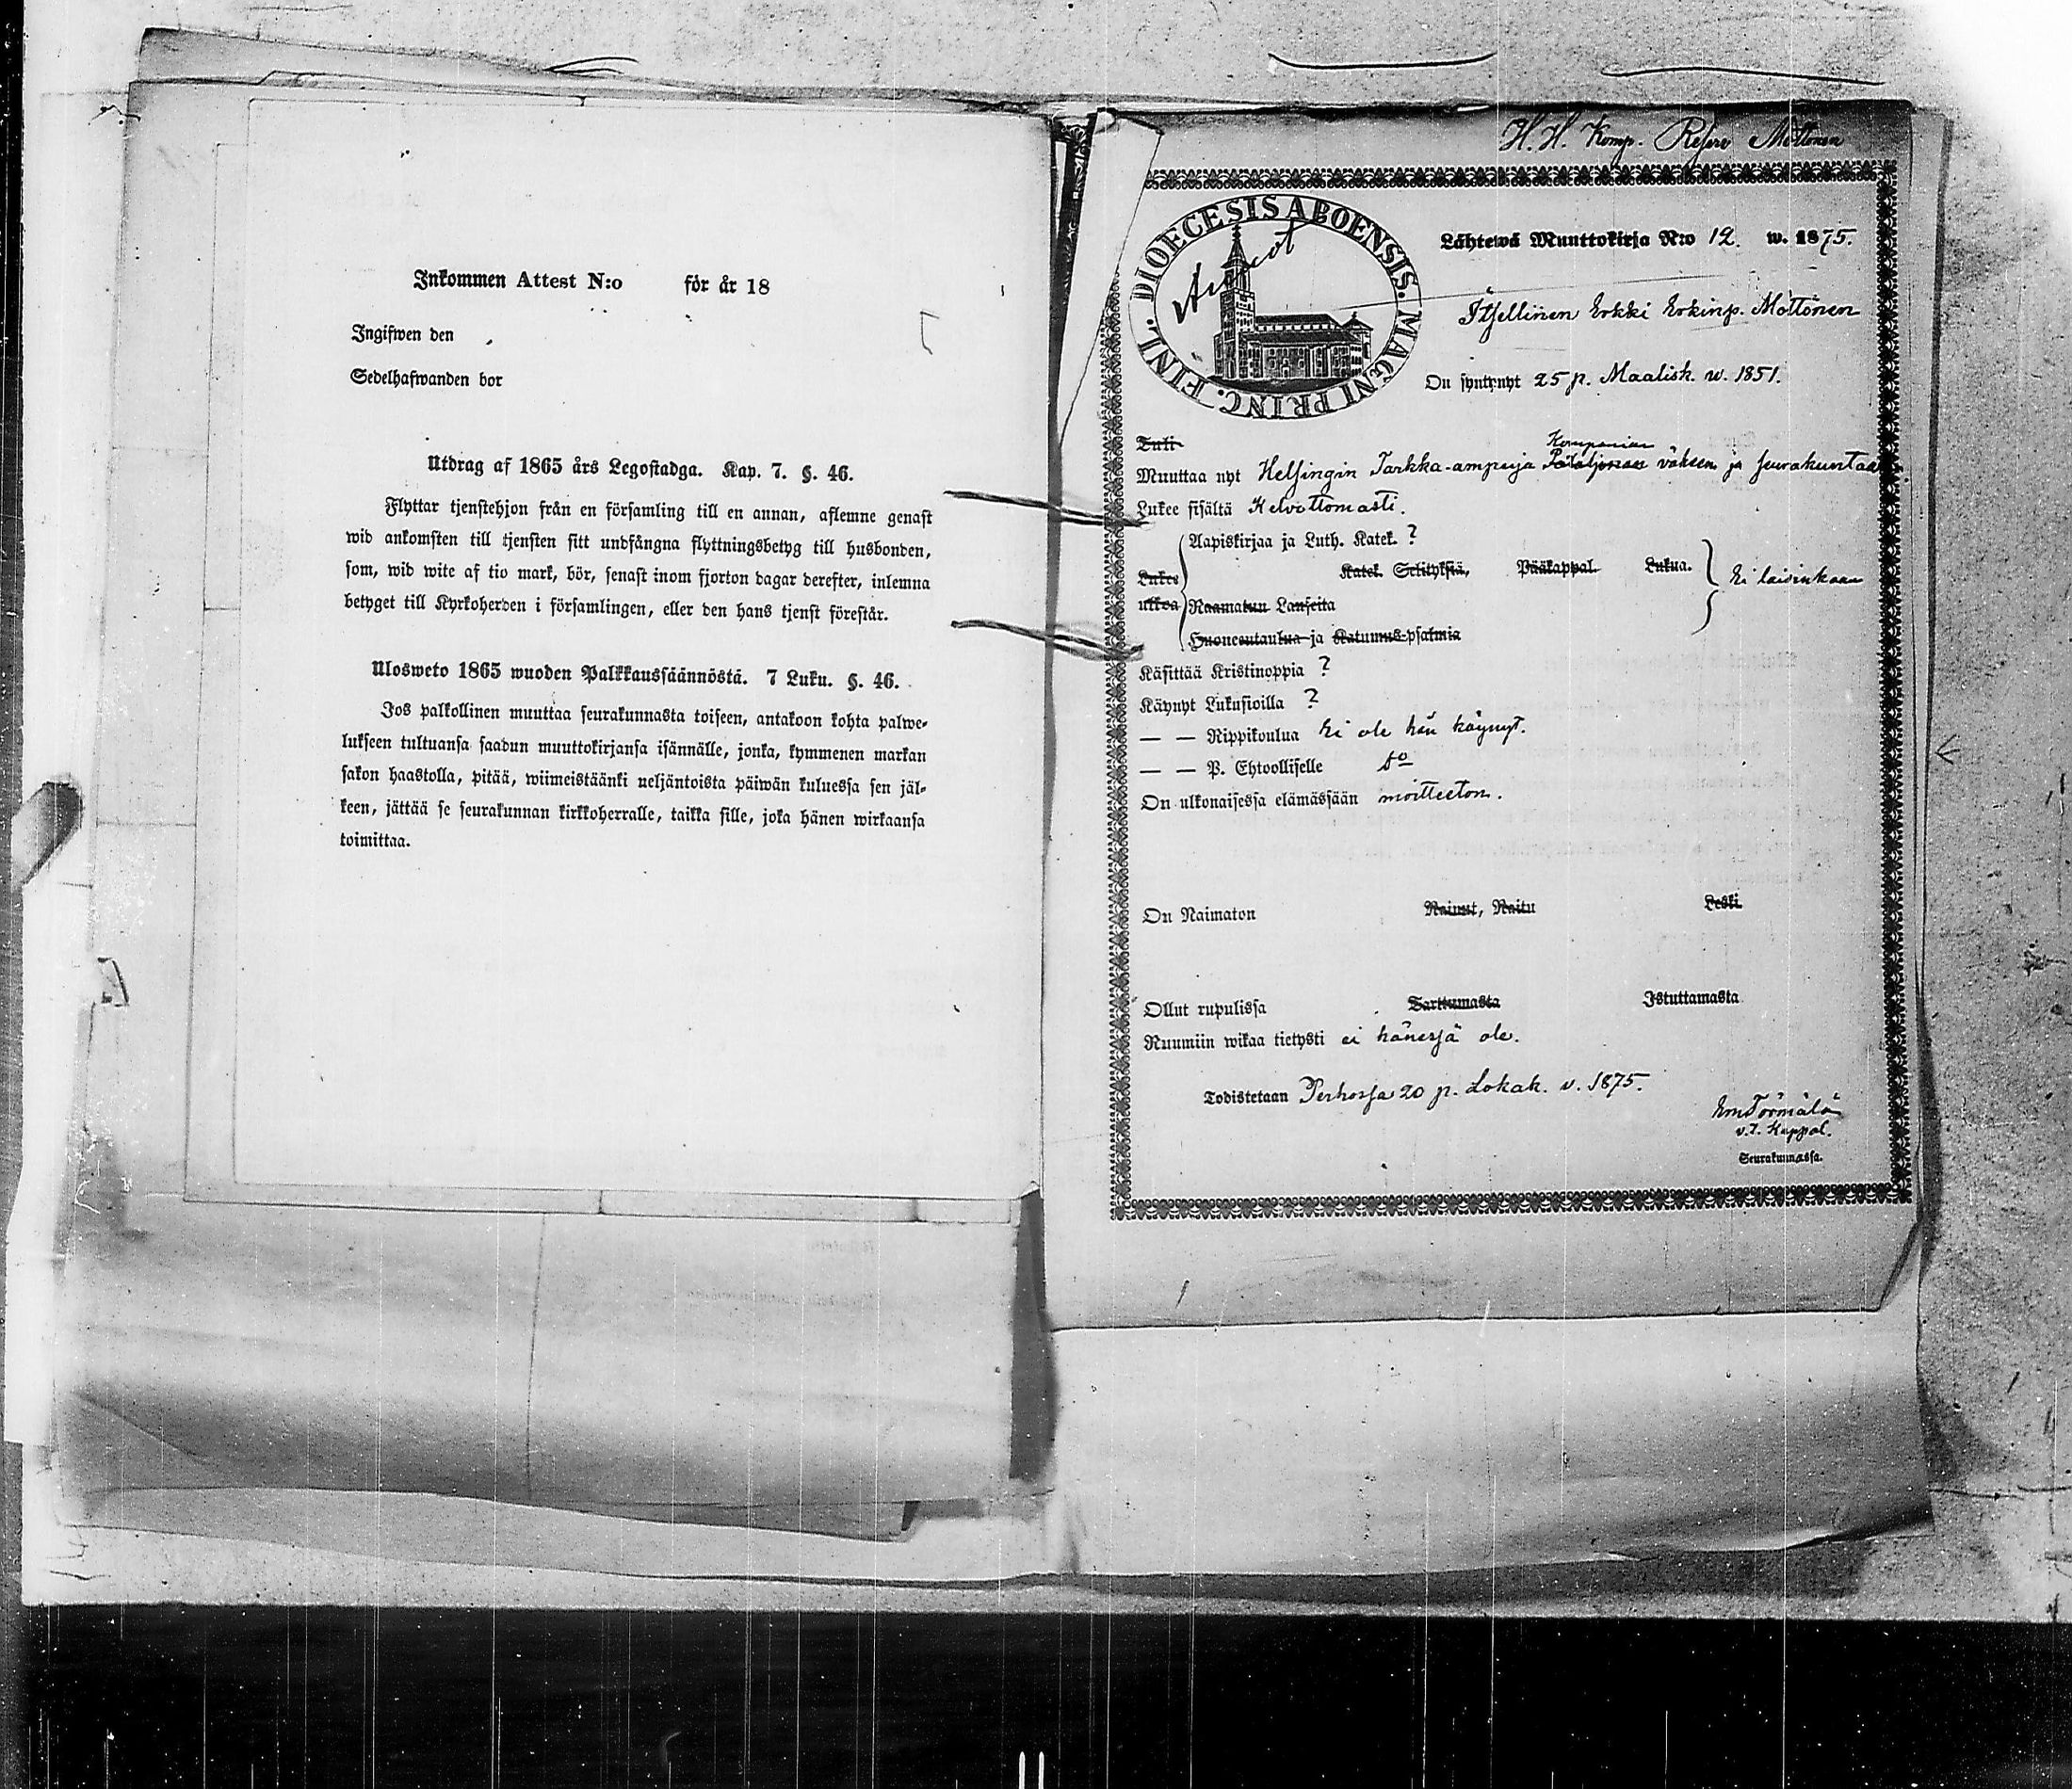 Inkommen Attest N:o för år 18
Ingifwen den
Sedelhafwanden bor
Utdrag af 1865 års Legostadga. Kap. 7. §. 46.
Flyttar tjenstehjon från en församling till en annan, aflemne genast
wid ankomsten till tjensten sitt undfångna flyttningsbetyg till husbonden,
som, wid wite af tio mark, bör, senast inom fjorton dagar derefter, inlemna
betyget till Kyrkoherden i församlingen, eller den hans tjenst förestår.
Ulosweto 1865 wuoden Palkkaussäännöstä. 7 Luku. §. 46.
Jos palkollinen muuttaa seurakunnasta toiseen, antakoon kohta palwe-
lukseen tultuansa saadun muuttokirjansa isännälle, jonka, kymmenen markan
sakon haastolla, pitää, wiimeistäänki neljäntoista päiwän kuluessa sen jäl-
keen, jättää se seurakunnan kirkkoherralle, taikka sille, joka hänen wirkaansa
toimittaa.
H. H. Komp. Reserv Möttönen
DIOECESIS ABOENSIS. MAGNI PRINC. FINL.
Lähtewä Muuttokirja N:o 12. w. 1875.
Itsellinen Erkki Erkinp. Möttönen
On syntynyt 25 p. Maalisk. w. 1851.
Tuli
Kompanian
Muuttaa nyt Helsingin Tarkka-ampuja Pataljonan väkeen ja seurakuntaan
Lukee sisältä Kelvottomasti.
Aapiskirjaa ja Luth. Katek. ?
Lukee Katek. Selityksiä, Pääkappal. Lukua. Ei laisinkaan
ulkoa Raamatun Lauseita
Huoneentaulua ja Katumus-psalmia
Käsittää Kristinoppia ?
Käynyt Lukusioilla ?
— — Rippikoulua Ei ole hän käynyt.
— — P. Ehtoolliselle do
On ulkonaisessa elämässään moitteeton.
On Naimaton Nainut, Naitu Leski.
Ollut rupulissa Tarttumasta Istuttamasta
Ruumiin wikaa tietysti ei hänessä ole.
Todistetaan Perhossa 20 p. Lokak. v. 1875.
Em Törmälä
v.t. Kappal.
Seurakunnassa.